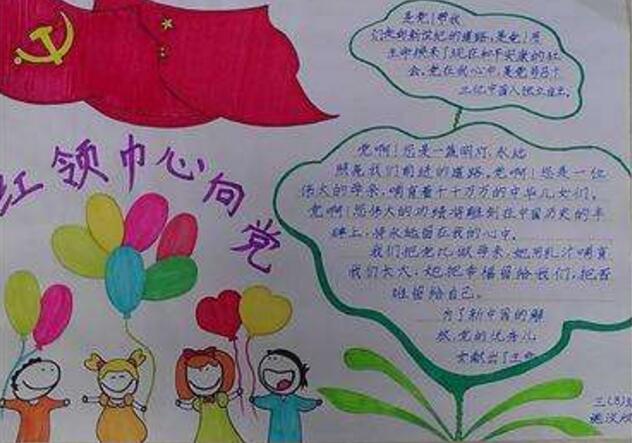 红领巾心向党
是党!帮我
们走到新世纪的道路,是党!用
生命换来了现在和平安康的社
会。党在我心中,是党将占个
亿中国人独立自主。
党啊!您是一盏明灯,永远
照亮我们前进的道路。党啊!您是一位
伟大的母亲,哺育着千千万万的中华儿女们。
党啊!您伟大的功绩将雕刻在中国历史的丰
碑上,将永远留在我的心中。
我们把党比做母亲,她用乳汁哺育
我们长大,她把幸福留给我们,把苦
难留给自己。
为了新中国的解
放,党的优秀儿
女献出了生命
三(8)